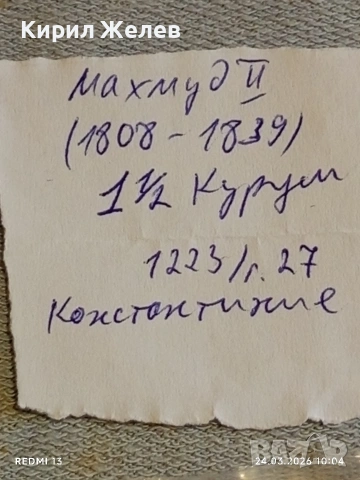 Кирил Желев
Махмуд II
(1808 - 1839)
1 1/2 Куруш
1223/г. 27
Константиние
REDMI 13
24.03.2026 10:04